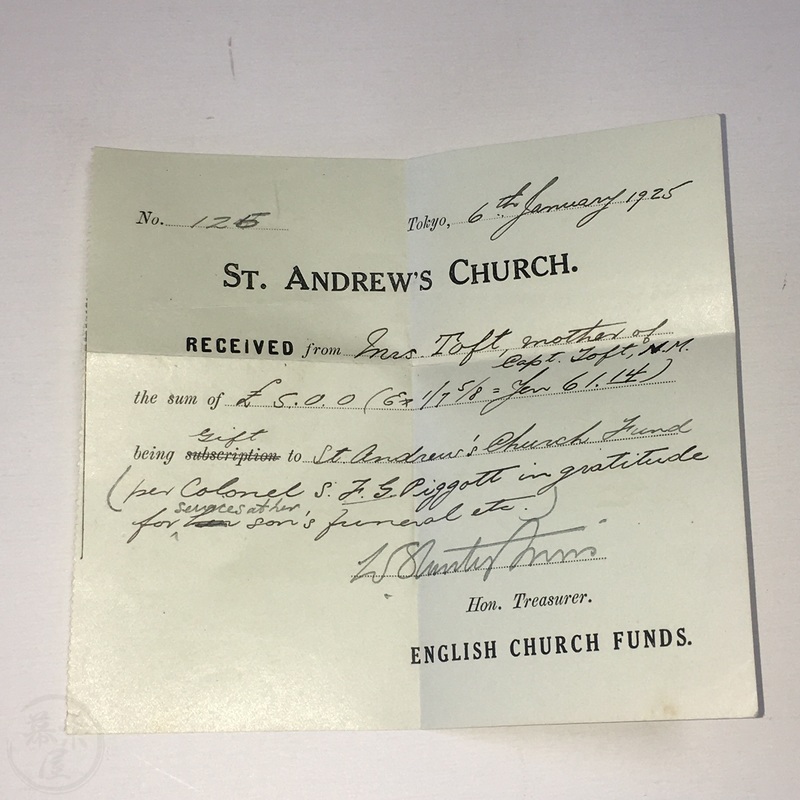 No. 125 Tokyo, 6th January 1925
ST. ANDREW'S CHURCH.
RECEIVED from Mrs. Toft, mother of
Capt. Toft, M.M.
the sum of £ 5.0.0 (Ex 1/7 5/8 = Yen 61.14)
Gift
being subscription to St Andrew's Church Fund
(per Colonel S. F. G. Piggott in gratitude
services at her
for son's funeral etc.)
Hon. Treasurer.
ENGLISH CHURCH FUNDS.